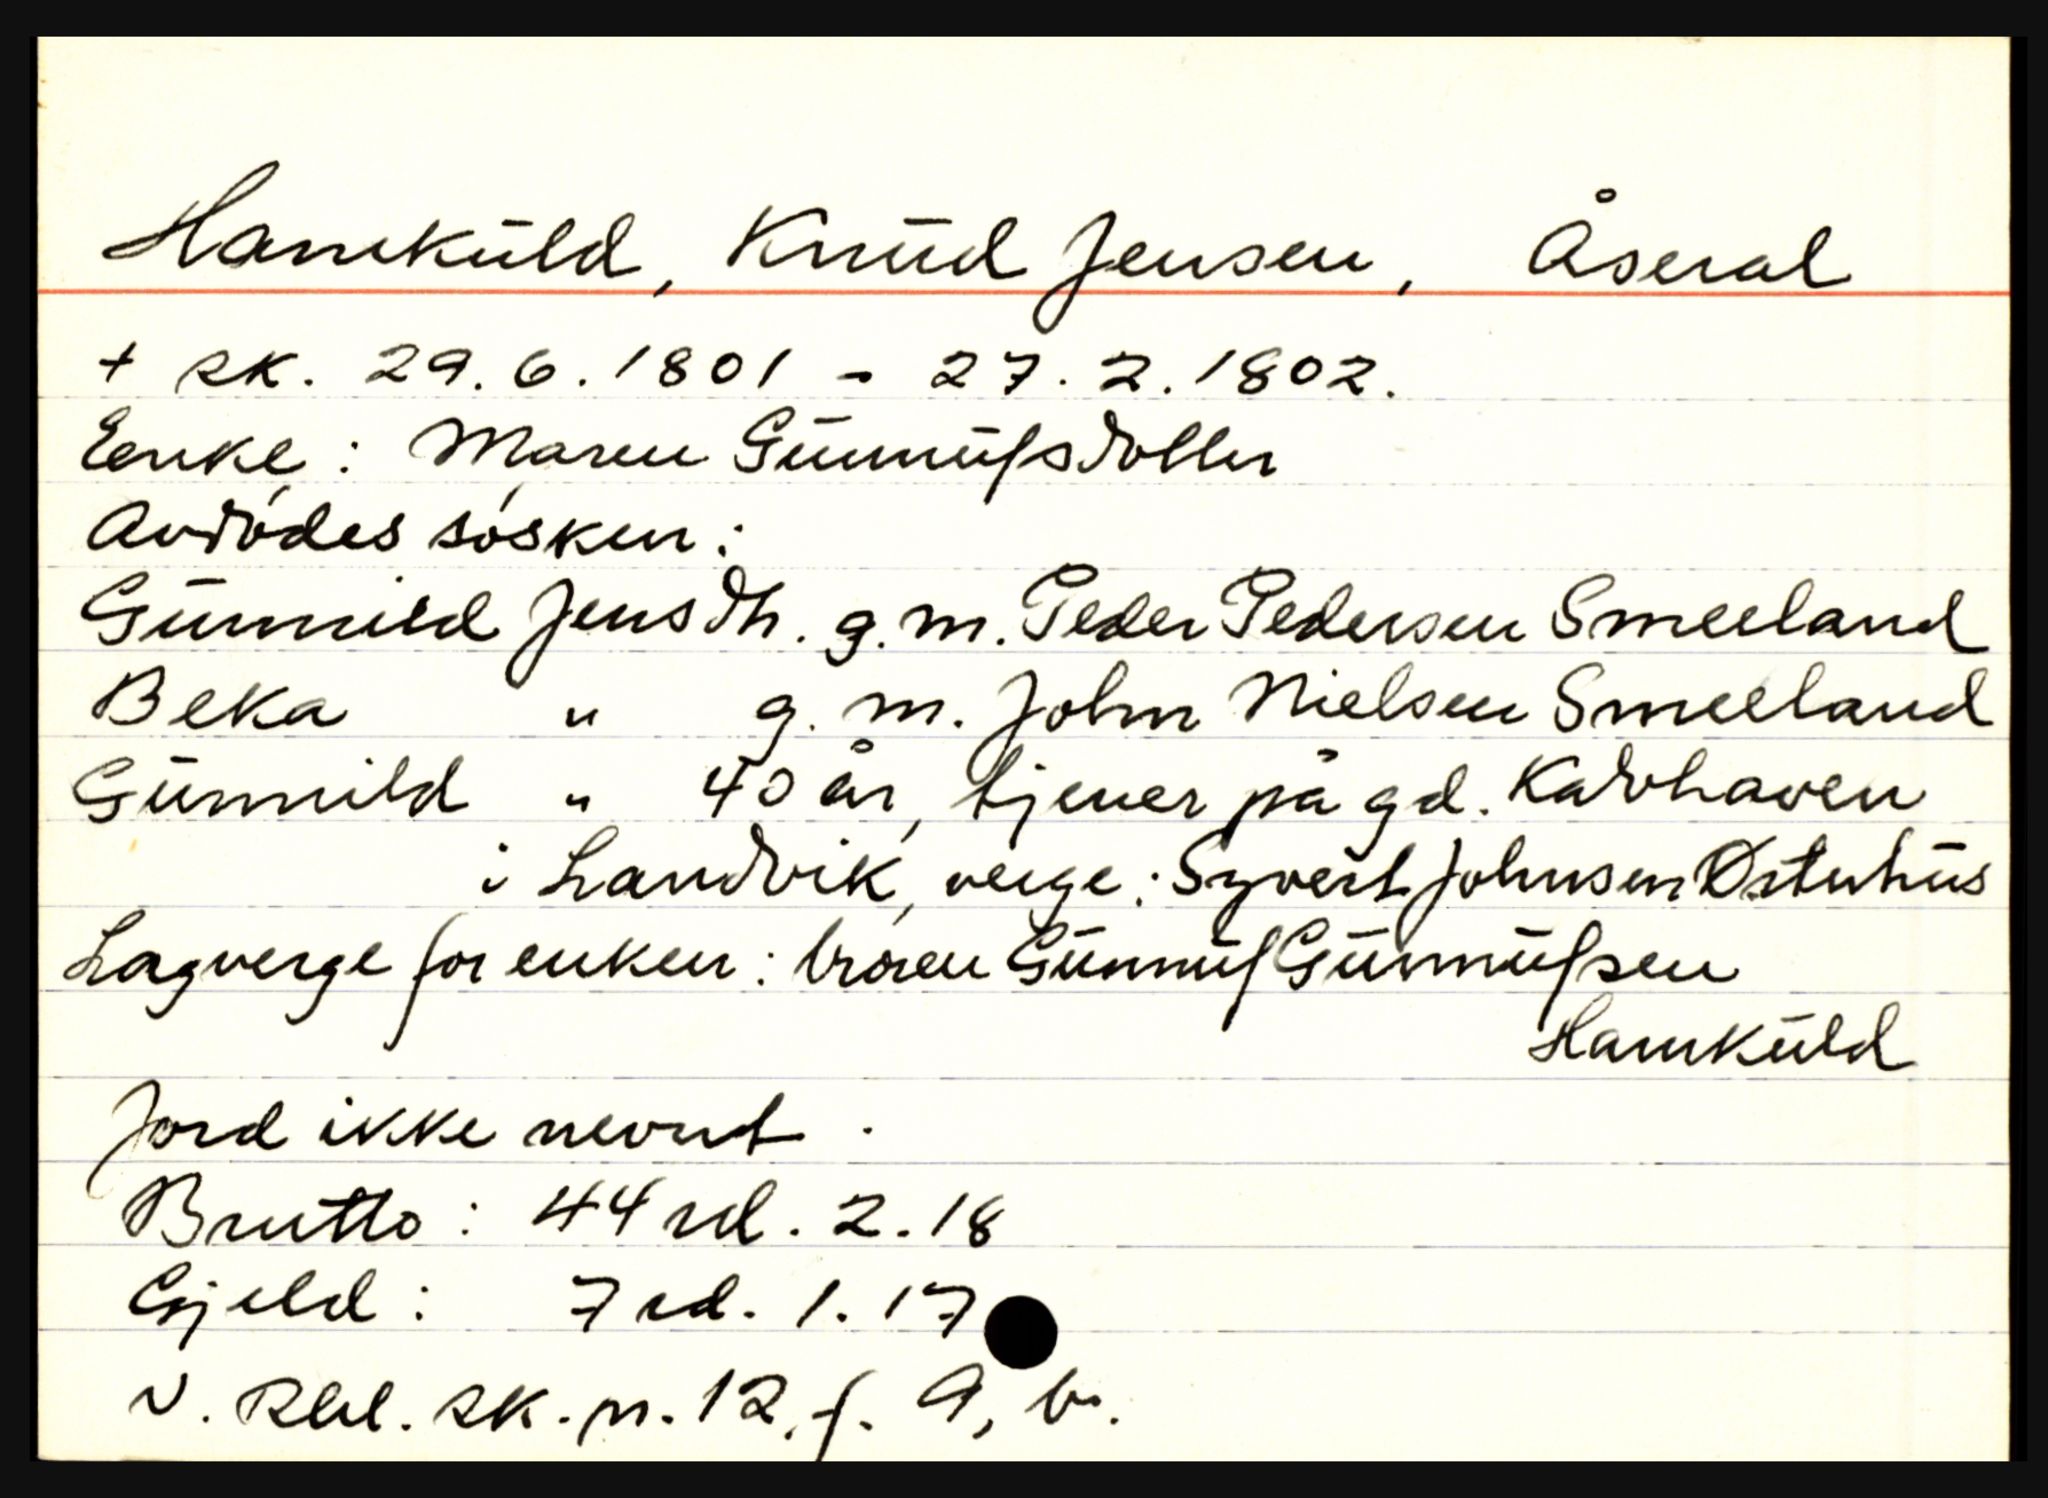 Hamkuld, Knud Jensen, Åseral
+ sk. 29.6.1801 - 27.2.1802.
Enke: Maren Gunnufsdotter
Avdødes søsken:
Gunnild Jensdtr. g.m. Peder Pedersen Smeeland
Beka " g. m. John Nielsen Smeeland
Gunnild " 40 år, tjener på gd. Kavhaven
i Landvik, verge: Syvert Johnsen Østuhus
Lagverge for enken: broren Gunnuf Gunnufsen
Hamkuld
Jord ikke nevnt.
Brutto: 44 rd. 2.18
Gjeld: 7 rd. 1.17
N. Rbd. sk. pr. 12, f. 9, b.